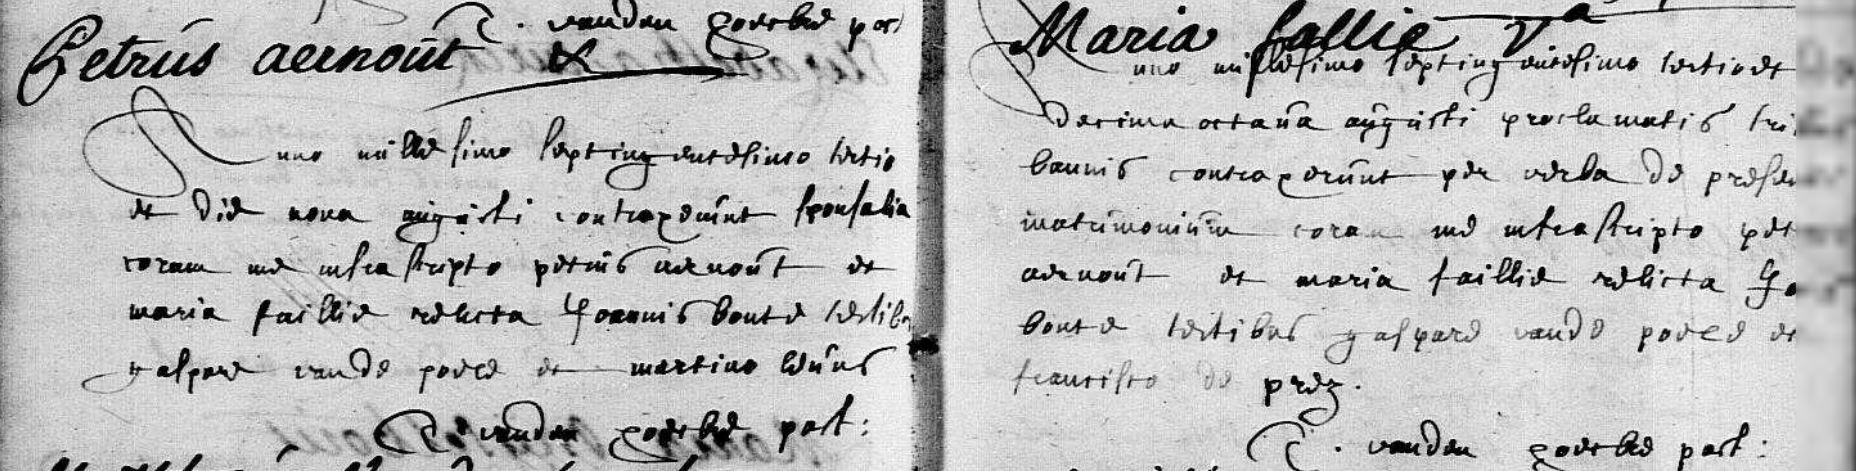 C. vanden goesbe past
Petrus aernout &
Anno millesimo septingentesimo tertio
et die nona augusti contraxerunt sponsalia
coram me infrascripto petrus aernout et
maria faillie relicta Joannis bonte testib
gaspare vande poele et martino
C. vanden past:
Maria fallie
Anno millesimo septingentesimo tertio et
decima octava augusti proclamatis tri
bannis contraxerunt per verba de presen
matrimonium coram me infrascripto pet
aernout et maria faillie relicta Jo
bonte testibus gaspare vande poele et
francisco de prez.
C. vanden past: